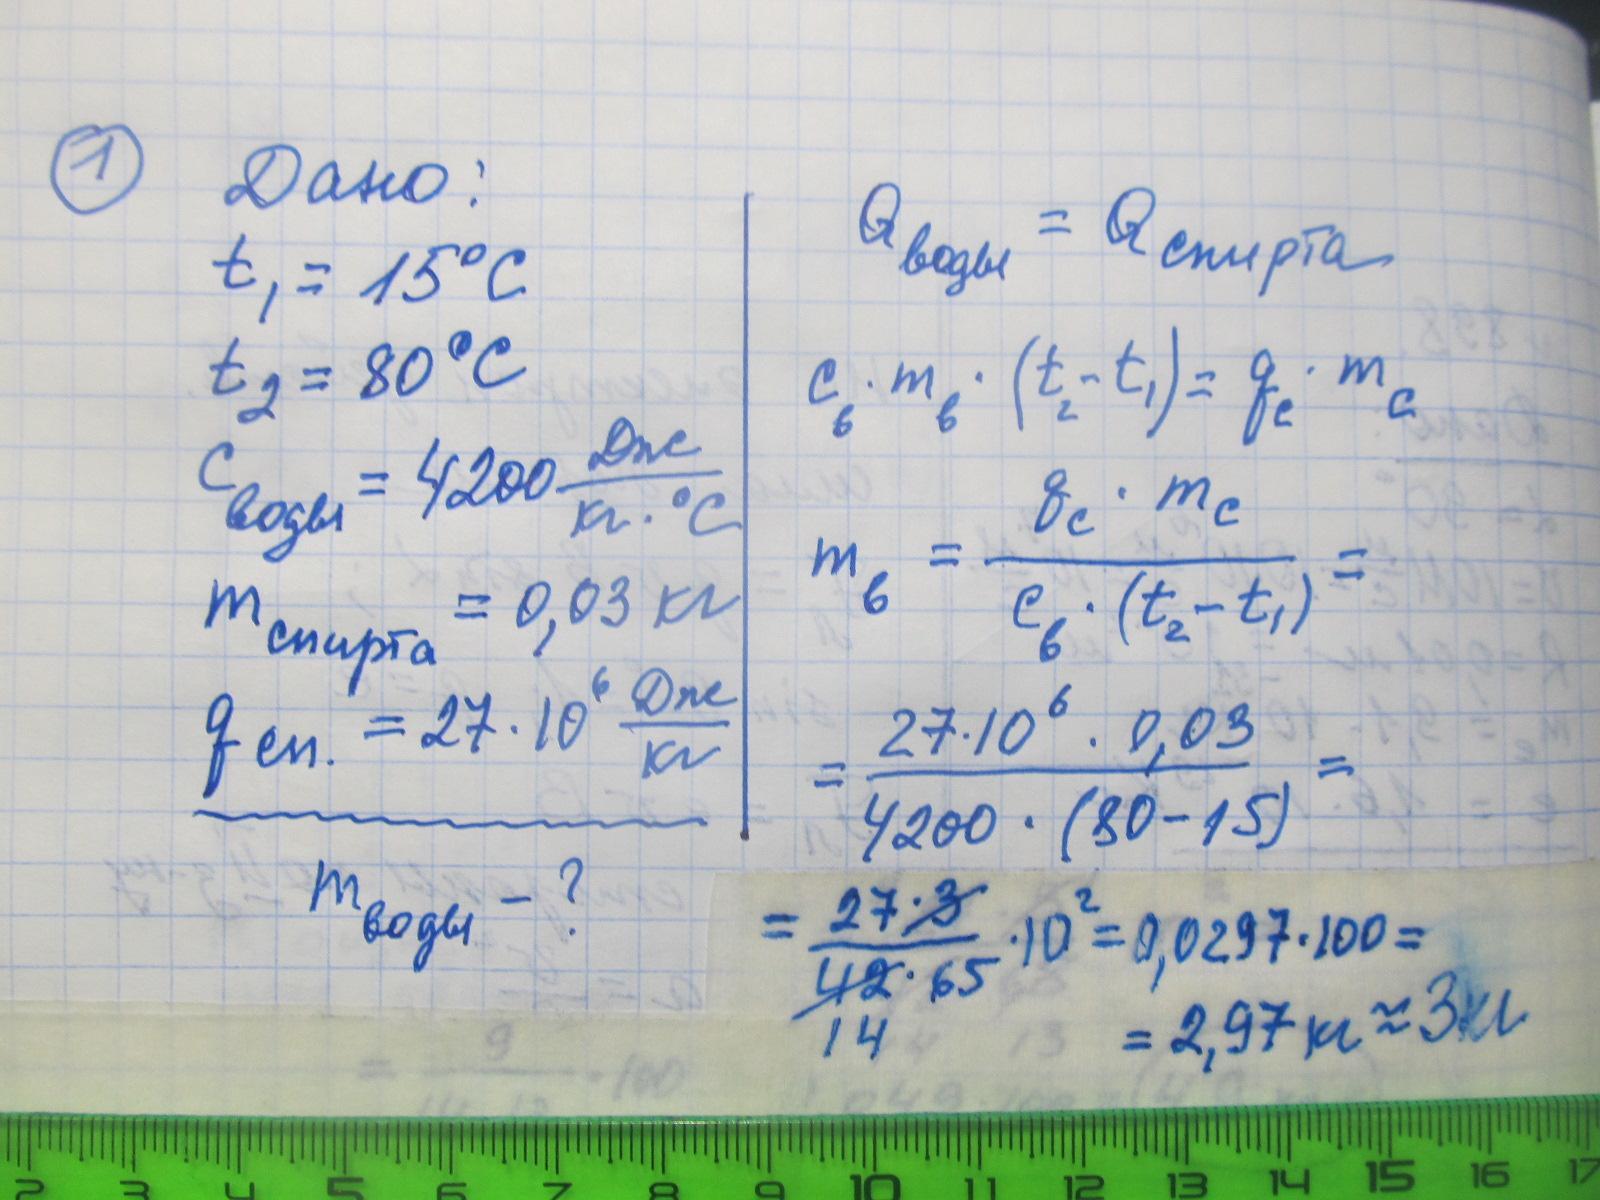 1
Дано:
t₁ = 15°C
t₂ = 80°C
C воды = 4200 Дж / кг·°C
m спирта = 0,03 кг
q сп. = 27·10⁶ Дж / кг
m воды – ?
Q воды = Q спирта
c в · m в · (t₂ - t₁) = q с · m с
m в = q с · m с / c в · (t₂ - t₁) =
= 27·10⁶ · 0,03 / 4200 · (80 - 15) =
= 27·3 / 42·65 · 10² = 0,0297·100 =
14
= 2,97 кг ≈ 3 кг
2 3 4 5 6 7 8 9 10 11 12 13 14 15 16 17